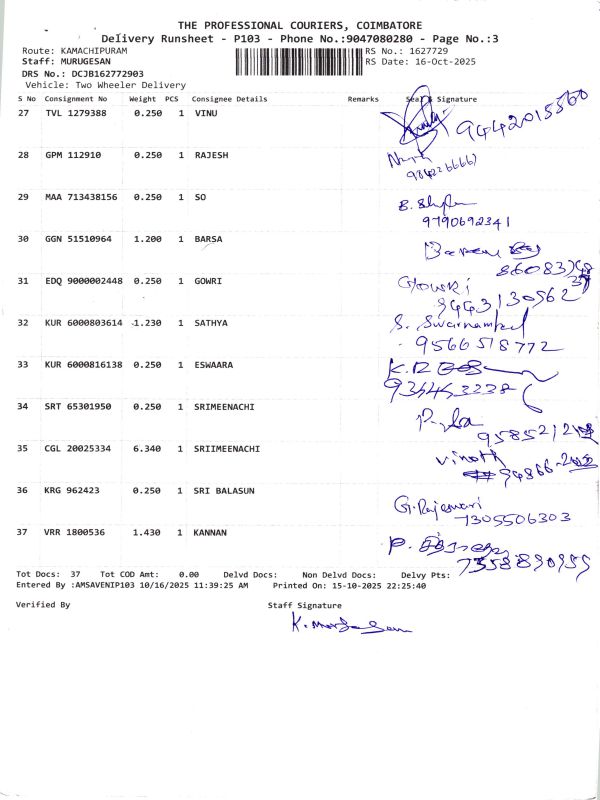 THE PROFESSIONAL COURIERS, COIMBATORE
Delivery Runsheet - P103 - Phone No.:9047080280 - Page No.:3
Route: KAMACHIPURAM RS No.: 1627729
Staff: MURUGESAN RS Date: 16-Oct-2025
DRS No.: DCJB162772903
Vehicle: Two Wheeler Delivery
S No Consignment No Weight PCS Consignee Details Remarks Seal & Signature
27 TVL 1279388 0.250 1 VINU 9442015560
28 GPM 112910 0.250 1 RAJESH
29 MAA 713438156 0.250 1 SO
9790692341
30 GGN 51510964 1.200 1 BARSA
31 EDQ 9000002448 0.250 1 GOWRI Gowri
9443130562
32 KUR 6000803614 1.230 1 SATHYA S. Swarnambal
9566518772
33 KUR 6000816138 0.250 1 ESWAARA
34 SRT 65301950 0.250 1 SRIMEENACHI
35 CGL 20025334 6.340 1 SRIIMEENACHI Vinoth
36 KRG 962423 0.250 1 SRI BALASUN G. Rajeswari
7305506303
37 VRR 1800536 1.430 1 KANNAN
Tot Docs: 37 Tot COD Amt: 0.00 Delvd Docs: Non Delvd Docs: Delvy Pts:
Entered By :AMSAVENIP103 10/16/2025 11:39:25 AM Printed On: 15-10-2025 22:25:40
Verified By Staff Signature